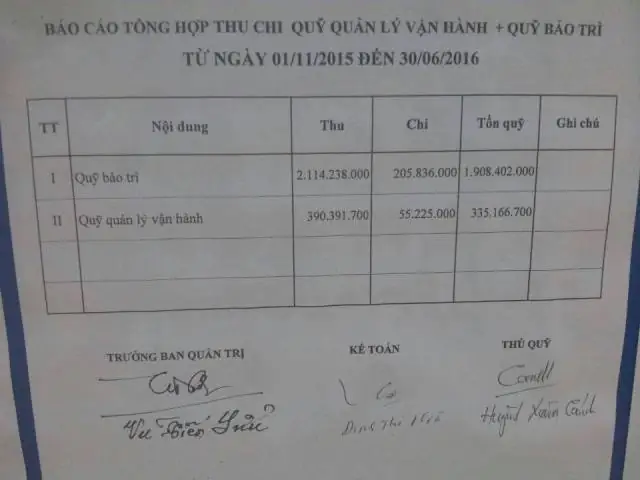 BÁO CÁO TỔNG HỢP THU CHI QUỸ QUẢN LÝ VẬN HÀNH + QUỸ BẢO TRÌ
TỪ NGÀY 01/11/2015 ĐẾN 30/06/2016
TT Nội dung Thu Chi Tồn quỹ Ghi chú
I Quỹ bảo trì 2.114.238.000 205.836.000 1.908.402.000
II Quỹ quản lý vận hành 390.391.700 55.225.000 335.166.700
TRƯỞNG BAN QUẢN TRỊ KẾ TOÁN THỦ QUỸ
Vũ Tiến Huỳnh Xuân Cảnh